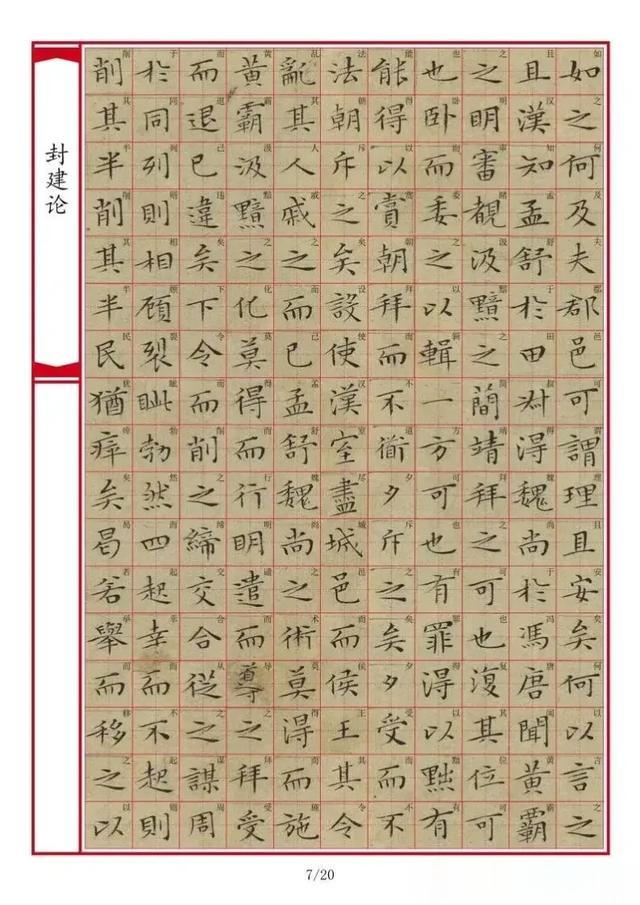 封建论
如之何及夫郡邑可謂理且安矣何以言之
且漢知孟舒於田叔得魏尚於馮唐聞黃霸
之明審覩汲黯之簡靖拜之可也復其位可
也臥而委之以輯一方可也有罪得以黜有
能得以賞朝拜而不道夕斥之矣夕受而不
法朝斥之矣設使漢室盡城邑而侯王其令
亂其人戚之而已孟舒魏尚之術莫得而施
黃霸汲黯之化莫得而行明遣而導之拜受
而退已違矣下令而削之締交合從之謀周
於同列則相顧裂眦勃然而起幸而不起則
削其半削其半民猶瘁矣曷若舉而移之以
7/20